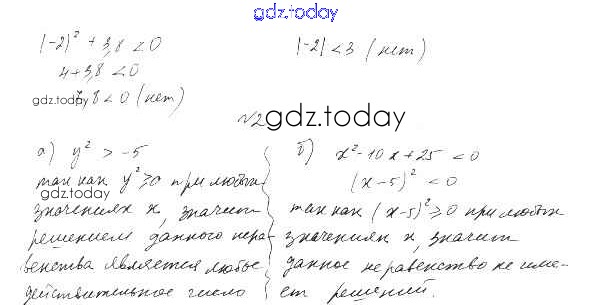 gdz.today
(-2)² + 3,8 < 0
4 + 3,8 < 0
7,8 < 0 (нет)
|-2| < 3 (нет)
gdz.today
№2
gdz.today
а) y² > -5
так как y² ≥ 0 при любых
значениях x, значит
решением данного нера-
венства является любое
действительное число
gdz.today
б) x² - 10x + 25 < 0
(x - 5)² < 0
так как (x - 5)² ≥ 0 при любых
значениях x, значит
данное неравенство не име-
ет решений.